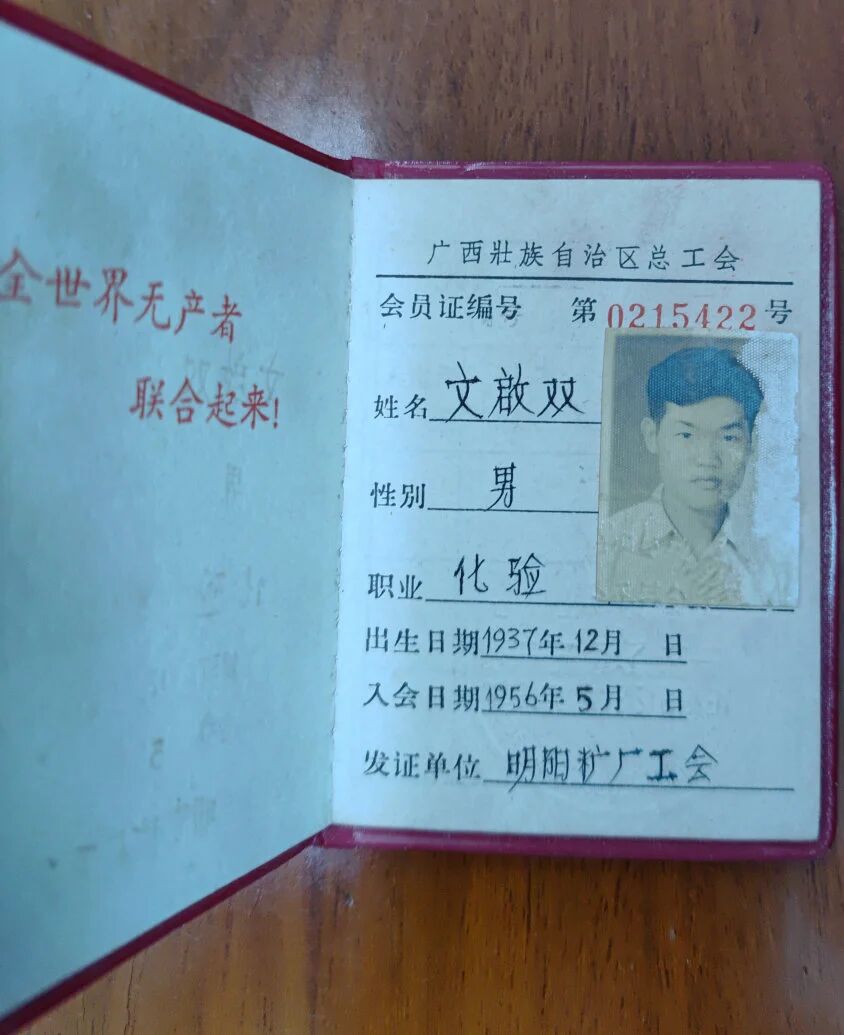 全世界无产者
联合起来!
广西壮族自治区总工会
会员证编号 第0215422号
姓名 文啟双
性别 男
职业 化验
出生日期1937年12月 日
入会日期1956年5月 日
发证单位 明阳矿厂工会